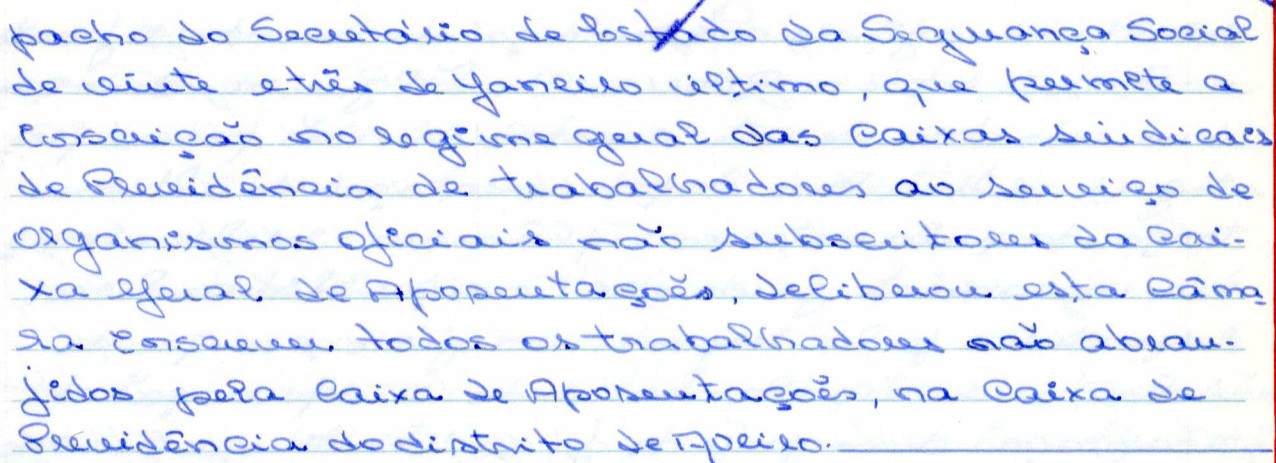 pacho do Secretário de Estado da Segurança Social
de vinte e três de Janeiro último, que permite a
inscrição no regime geral das Caixas Sindicais
de Previdência de trabalhadores ao serviço de
organismos oficiais não subscritores da Cai-
xa Geral de Aposentações, deliberou esta Câma
ra inscrever todos os trabalhadores não abran-
jidos pela Caixa de Aposentações, na Caixa de
Previdência do distrito de Aveiro.